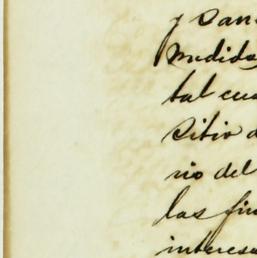 y San
medida
tal cua
sitio d
rio del
las fin
interesa